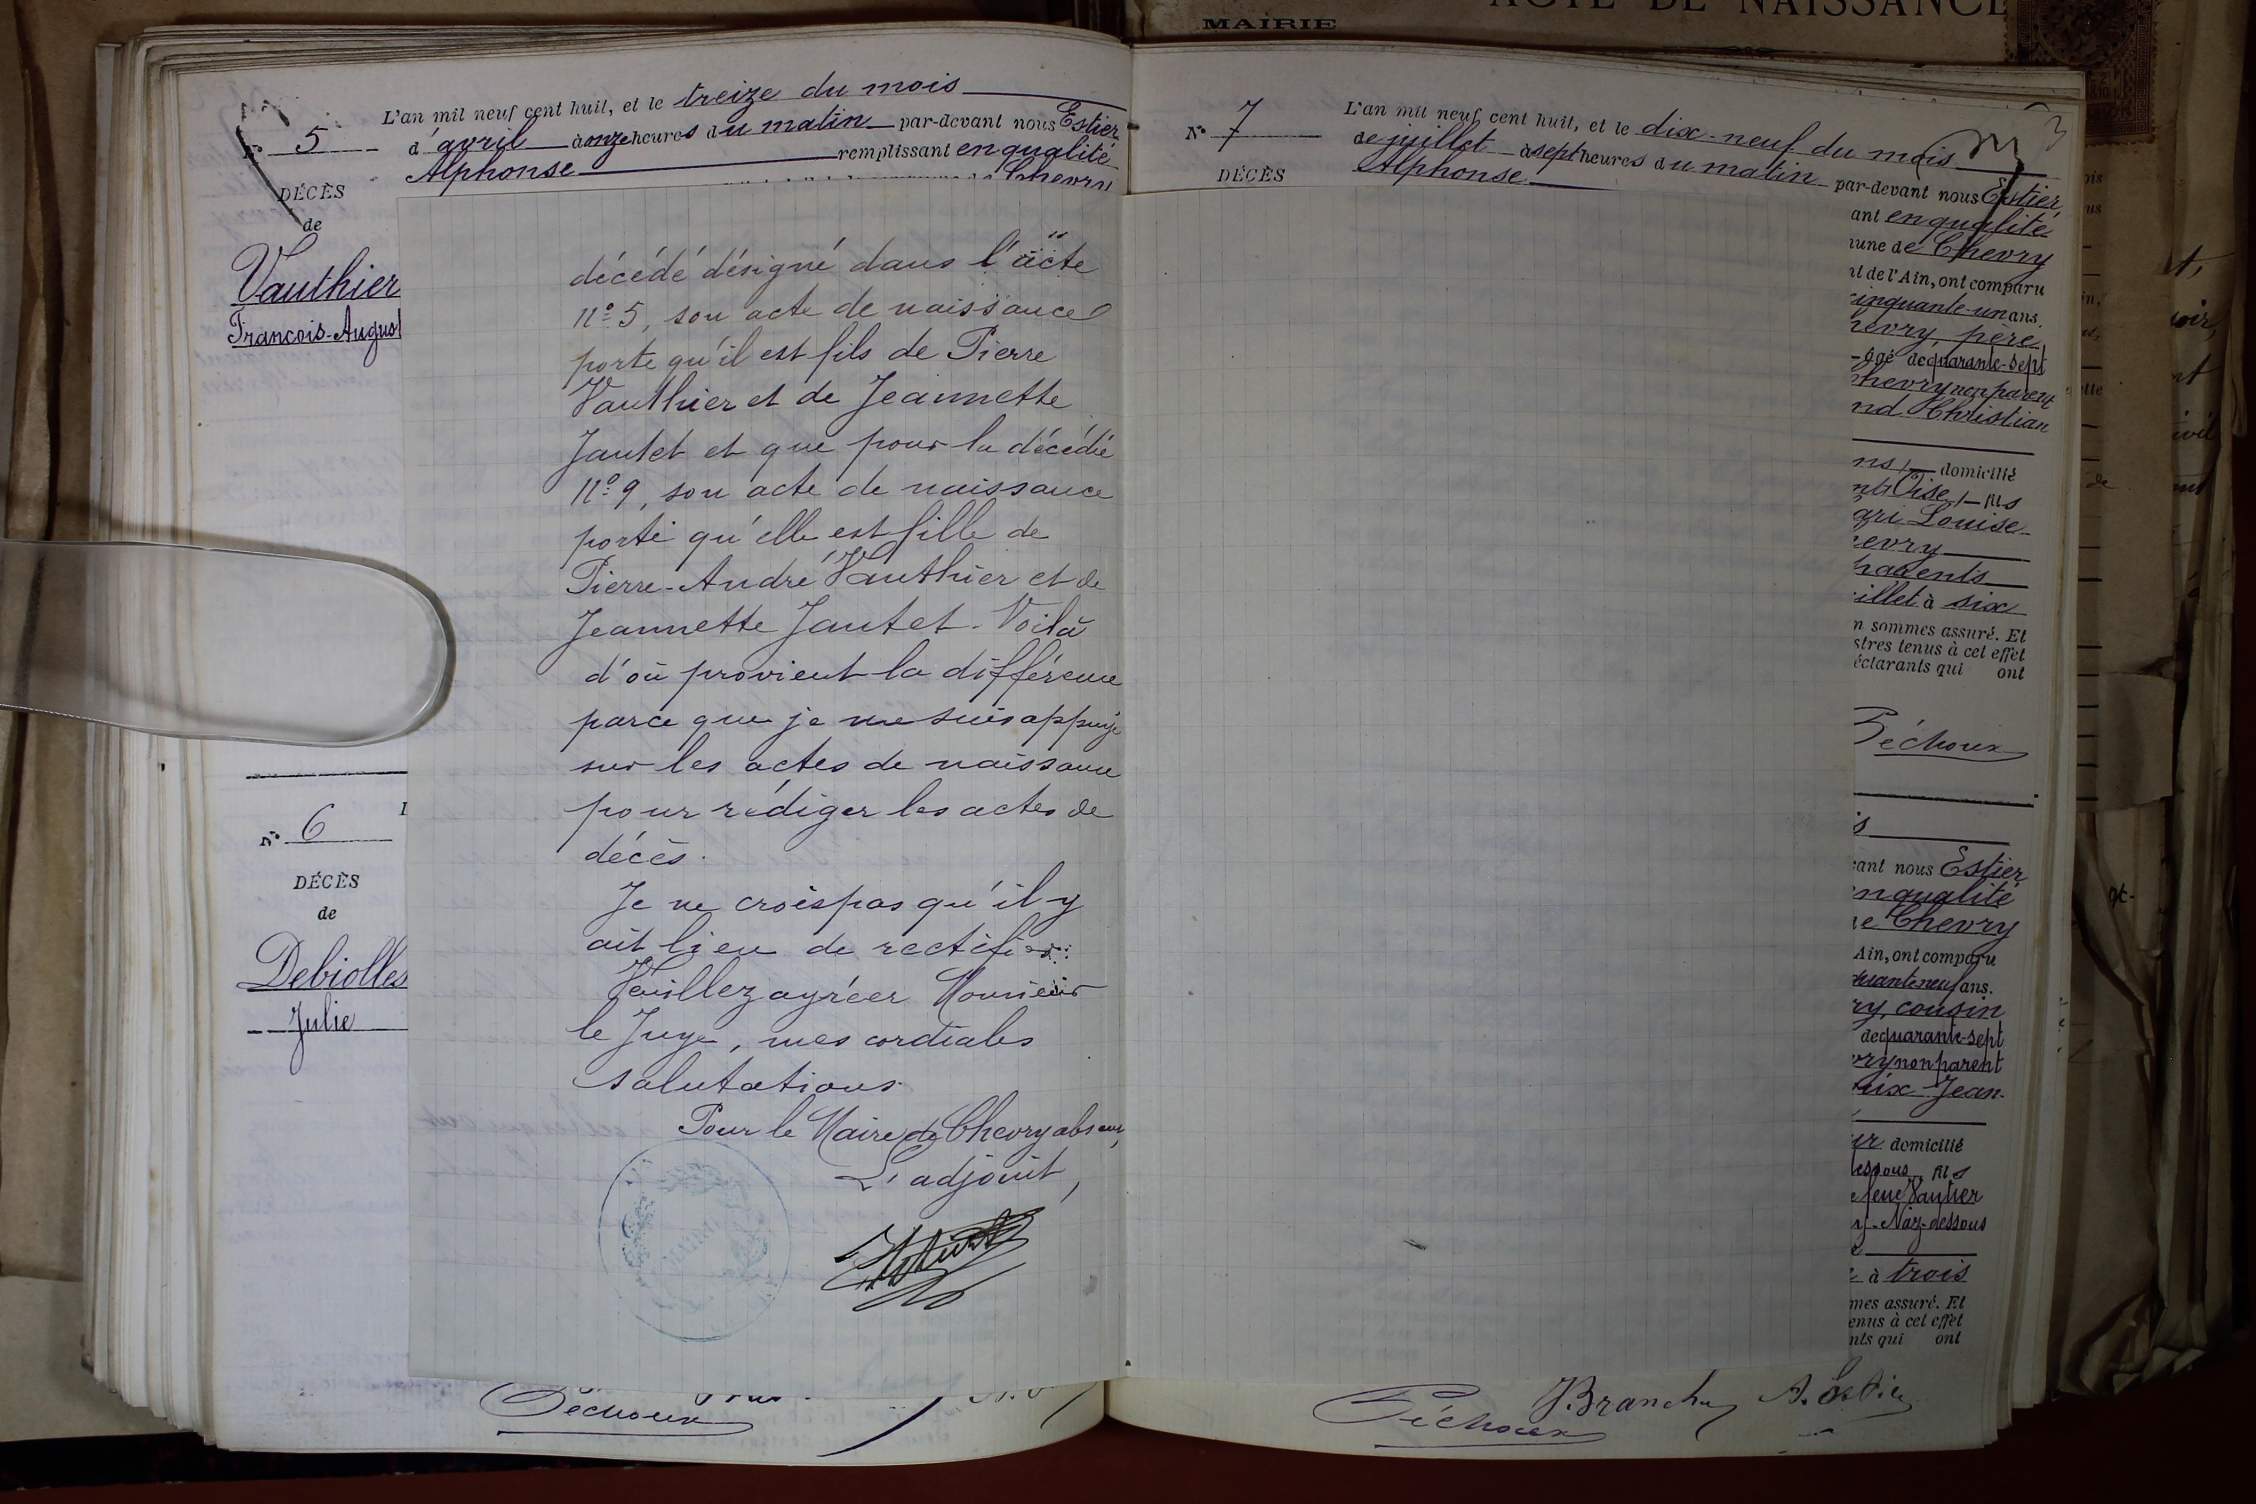 MAIRIE
ACTE DE NAISSANCE
L'an mil neuf cent huit, et le treize du mois
d'avril à onze heures du matin par-devant nous Estier
Alphonse remplissant en qualité
Chevry
N° 5
DÉCÈS
de
Vauthier
François-August
N° 6
DÉCÈS
de
Debiolles
Julie
décédé désigné dans l'acte
n° 5, son acte de naissance
porte qu'il est fils de Pierre
Vauthier et de Jeannette
Jantet et que pour la décédée
n° 9, son acte de naissance
porte qu'elle est fille de
Pierre-André Vauthier et de
Jeannette Jantet. Voilà
d'où provient la différence
parce que je me suis appuyé
sur les actes de naissance
pour rédiger les actes de
décès.
Je ne crois pas qu'il y
ait lieu de rectifier.
Veuillez agréer Monsieur
le Juge, mes cordiales
salutations.
Pour le Maire de Chevry absent,
L'adjoint,
Péchoux
N° 7
DÉCÈS
L'an mil neuf cent huit, et le dix-neuf du mois
de juillet à sept heures du matin par-devant nous Estier
Alphonse
ant en qualité
mune de Chevry
nt de l'Ain, ont comparu
cinquante-un ans.
hevry, père
âgé de quarante-sept
Chevry non parent
nd Christian
ns, domicilié
Oise, fils
ari Louise
hevry
parents
illet à six
n sommes assuré. Et
stres tenus à cet effet
éclarants qui ont
Péchoux
is
vant nous Estier
en qualité
ne Chevry
Ain, ont comparu
quante-neuf ans.
ry, cousin
de quarante-sept
vry non parent
Jean-
ur domicilié
dessous, fils
e feue Vautier
y-Naz-dessous
à trois
mes assuré. Et
enus à cet effet
nts qui ont
Péchoux
J. Branchu
A. Estier